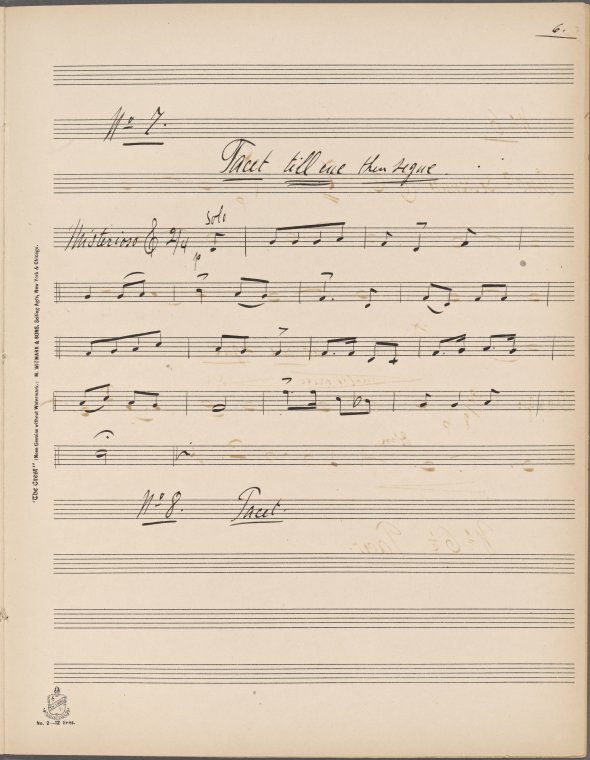 6.
No 7.
Tacet till cue then segue.
Solo
Misterioso 2/4
p
No 8. Tacet.
"The Crest" (None Genuine without Watermark.) M. WITMARK & SONS, Selling Agts, New York & Chicago.
No. 2—12 lines.